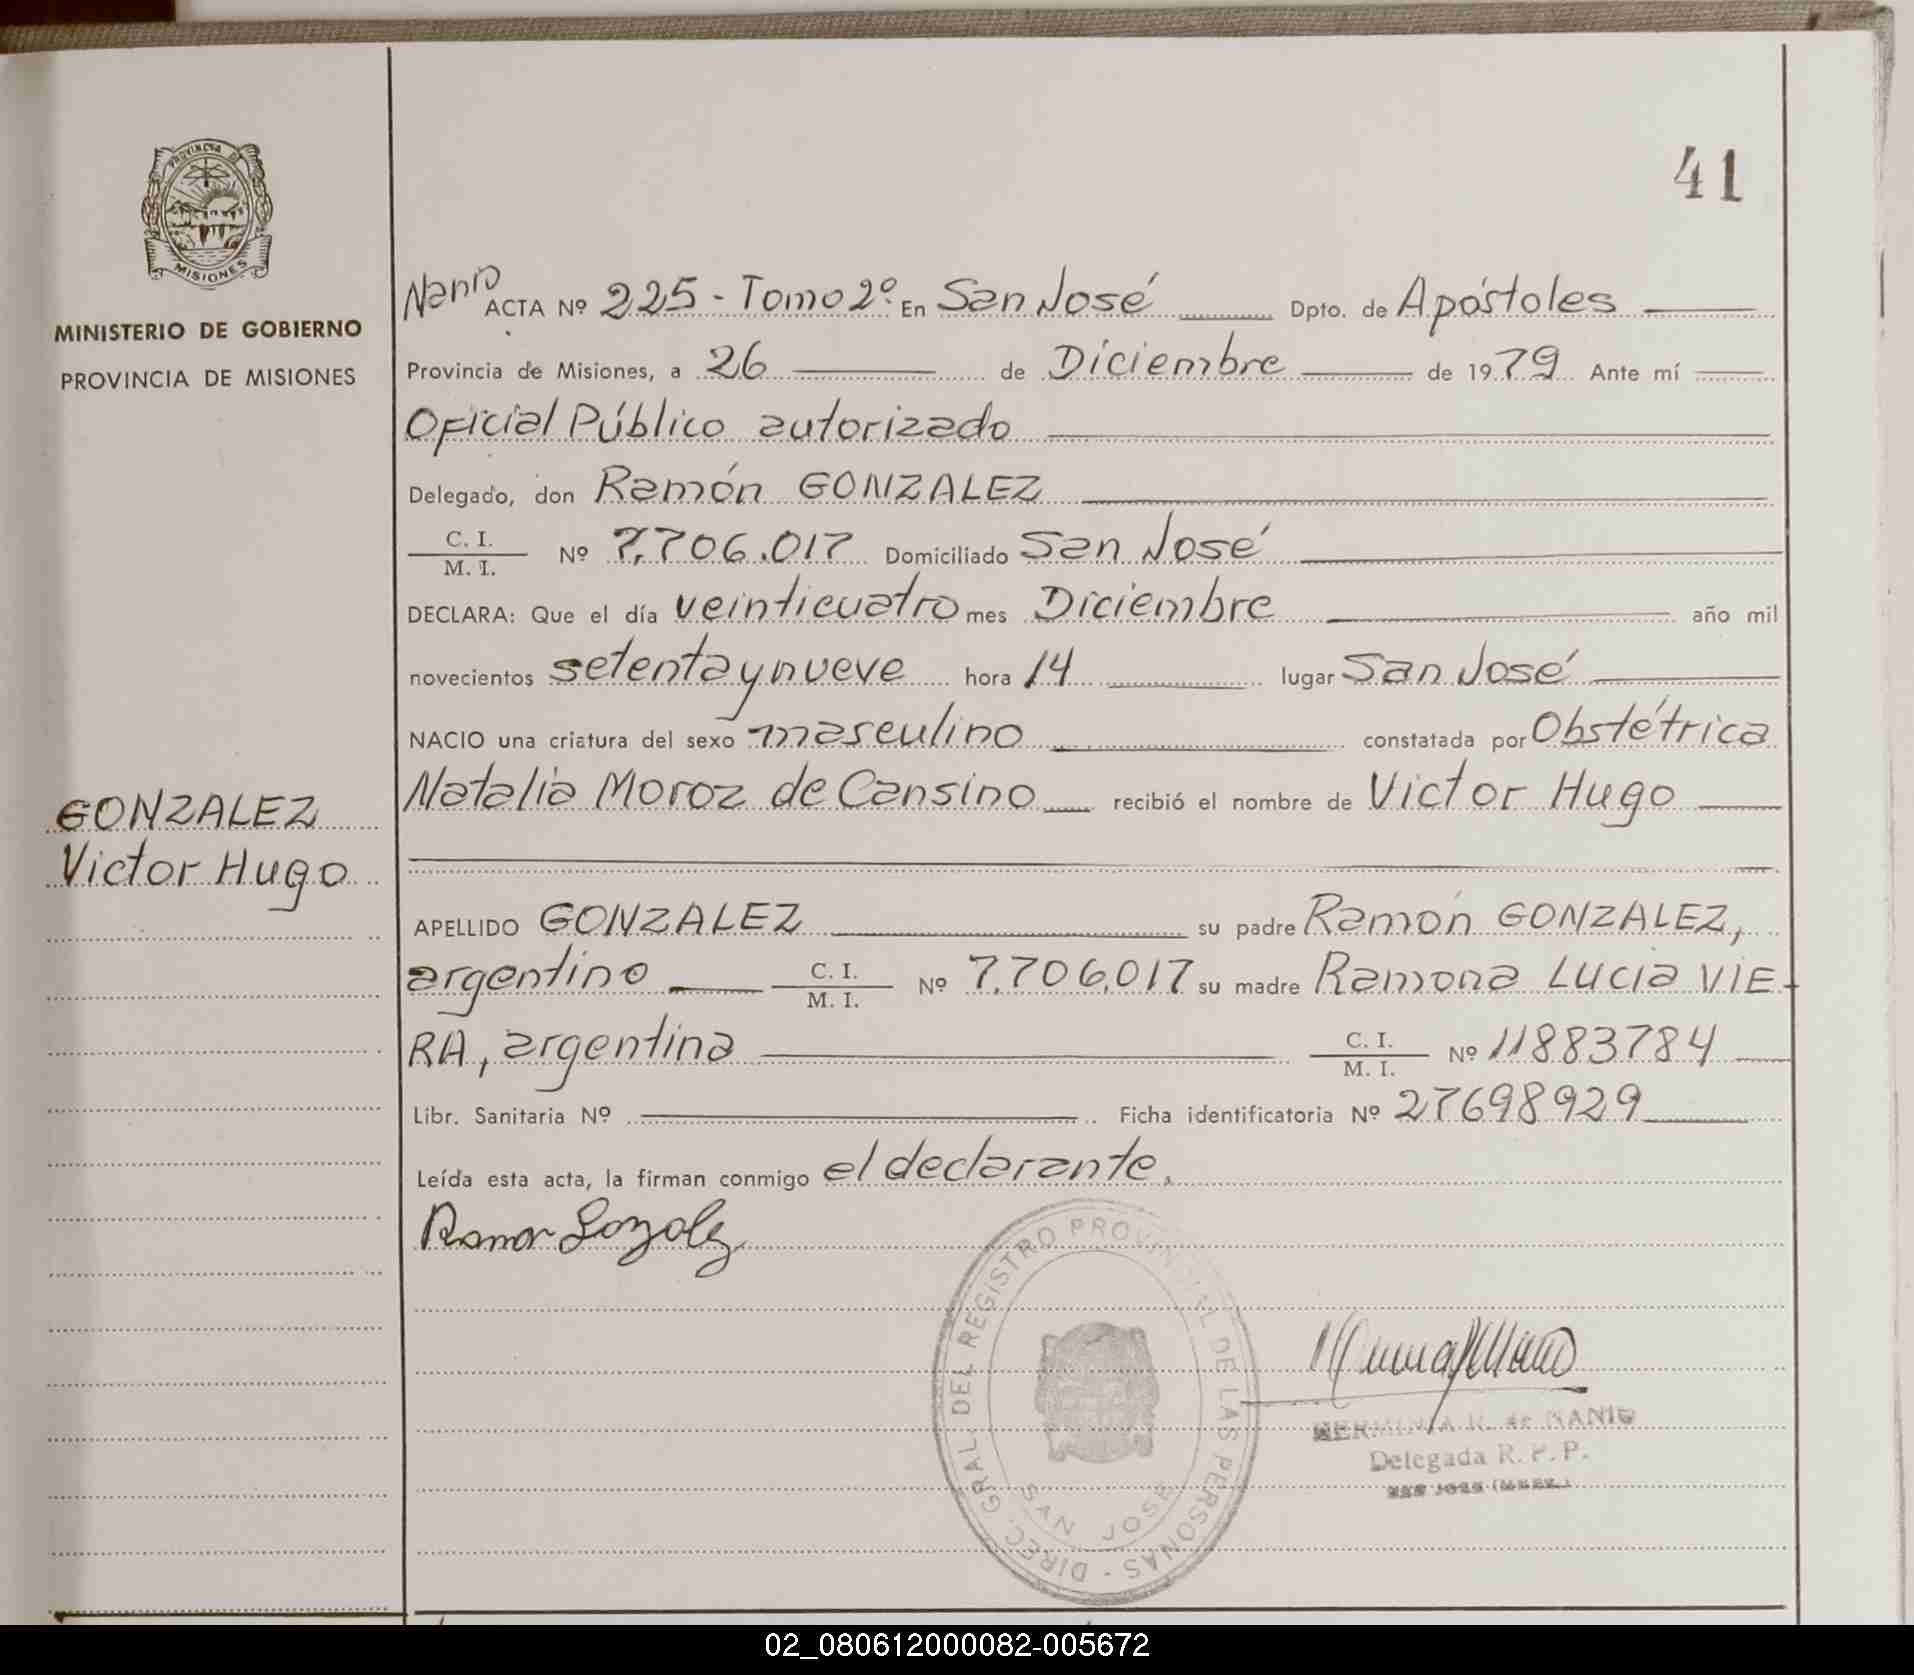 41
PROVINCIA DE
MISIONES
MINISTERIO DE GOBIERNO
PROVINCIA DE MISIONES
GONZALEZ
Victor Hugo
Nanio ACTA Nº 225 - Tomo 2º. En San José Dpto. de Apóstoles
Provincia de Misiones, a 26 de Diciembre de 1979 Ante mí
Oficial Público autorizado
Delegado, don Ramón GONZALEZ
C. I.
M. I. Nº 7.706.017 Domiciliado San José
DECLARA: Que el día veinticuatro mes Diciembre año mil
novecientos setenta y nueve hora 14 lugar San José
NACIO una criatura del sexo masculino constatada por Obstétrica
Natalia Moroz de Cansino recibió el nombre de Victor Hugo
APELLIDO GONZALEZ su padre Ramón GONZALEZ,
argentino C. I.
M. I. Nº 7.706.017 su madre Ramona Lucia VIE-
RA, argentina C. I.
M. I. Nº 11883784
Libr. Sanitaria Nº Ficha identificatoria Nº 27698929
Leída esta acta, la firman conmigo el declarante.
Ramon Gozalez
DIREC. GRAL. DEL REGISTRO PROVINCIAL DE LAS PERSONAS -
SAN JOSE
HERMINIA R. de NANIO
Delegada R. P. P.
SAN JOSE (Mnes.)
02_080612000082-005672